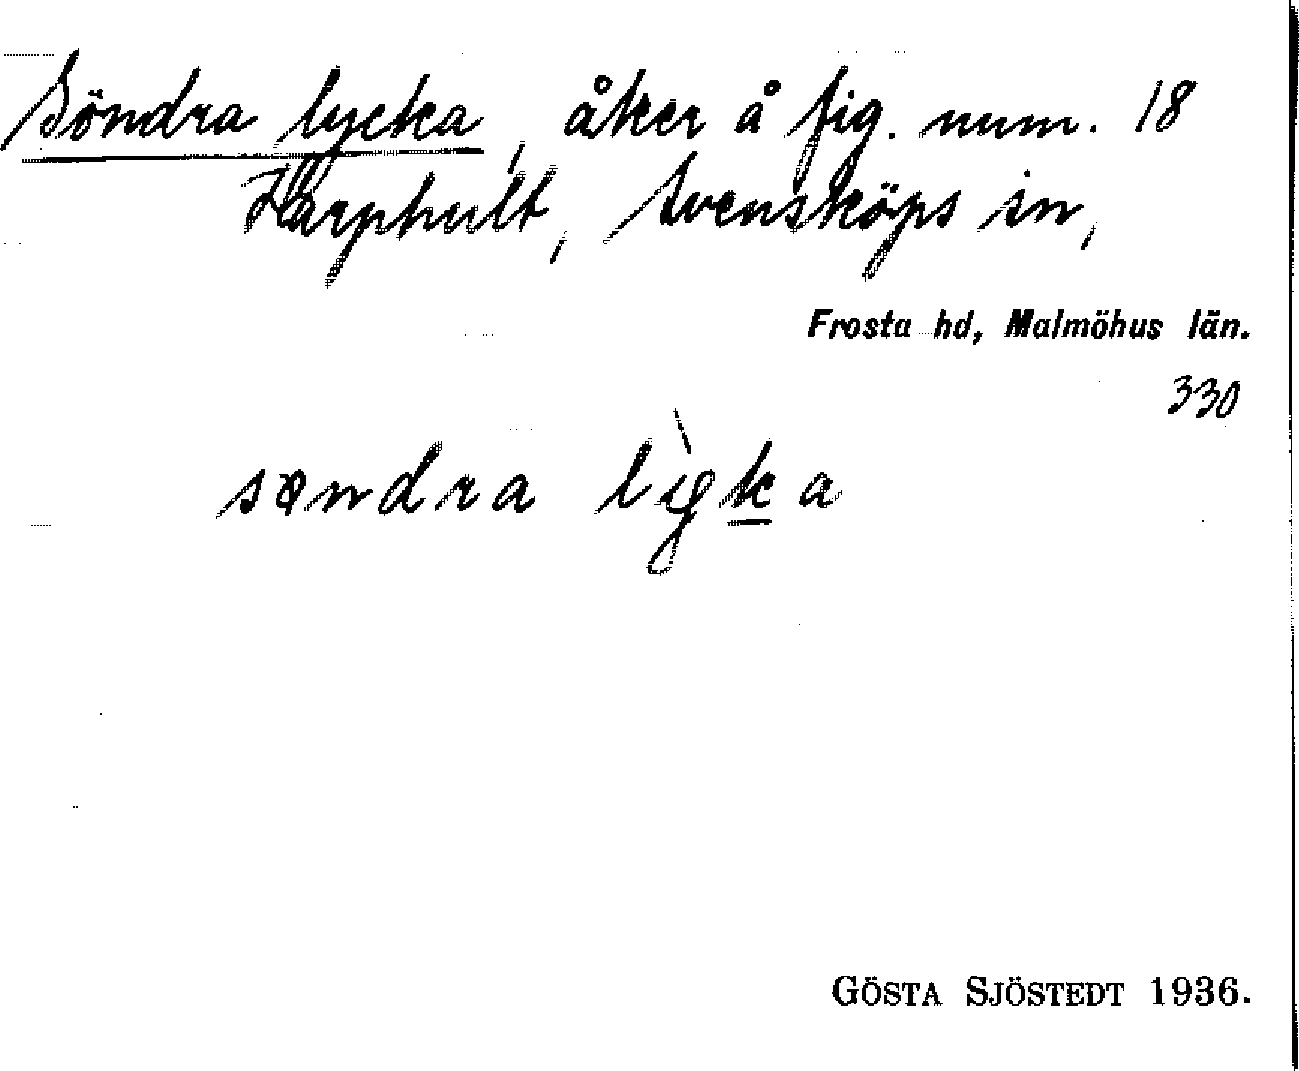 Söndra lycka, åker å fig. num. 18
Harphult, Svensköps sn,
Frosta hd, Malmöhus län.
330
søndra lỳk̲a
GÖSTA SJÖSTEDT 1936.